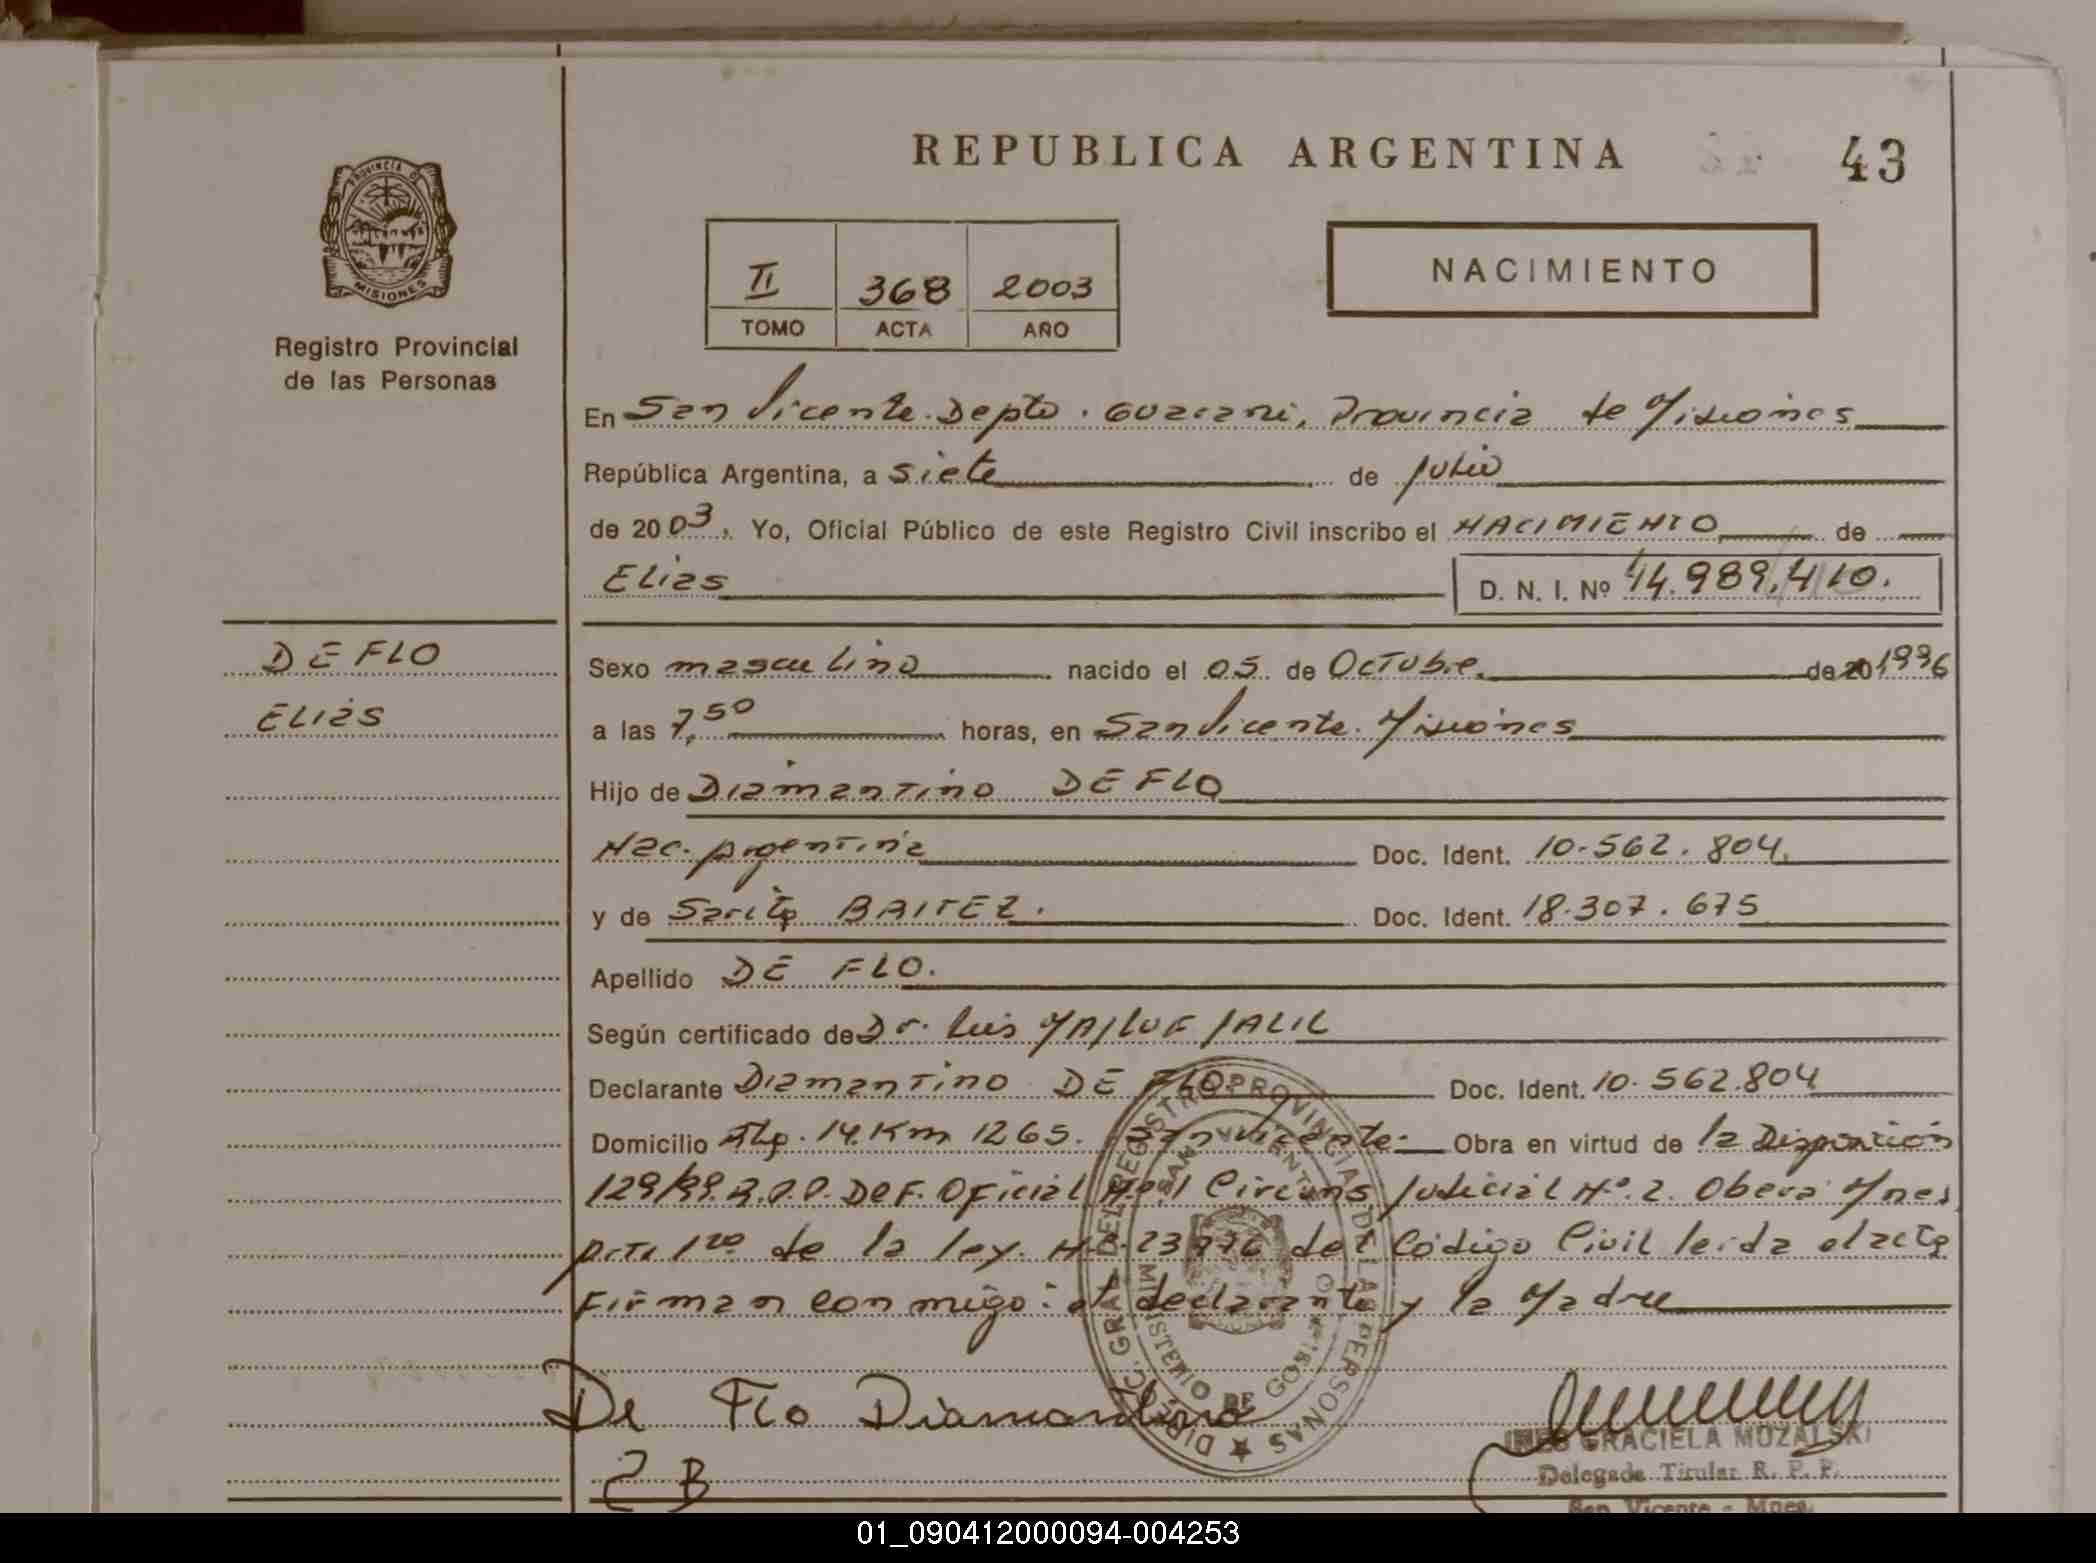 REPUBLICA ARGENTINA
43
PROVINCIA DE
MISIONES
Registro Provincial
de las Personas
II 368 2003
TOMO ACTA AÑO
NACIMIENTO
En San Vicente. Depto. Guarani, Provincia de Misiones
República Argentina, a siete de Julio
de 2003, Yo, Oficial Público de este Registro Civil inscribo el NACIMIENTO de
Elias
D. N. I. Nº 44.989.410.
DE FLO
Elias
Sexo masculino nacido el 05 de Octubre de 20 1996
a las 7,50 horas, en San Vicente. Misiones
Hijo de Diamantino DE FLO
Nac. Argentina Doc. Ident. 10.562.804
y de Sarita BAITEZ. Doc. Ident. 18.307.675
Apellido DE FLO.
Según certificado de Dr. Luis JALIL
Declarante Diamantino DE FLO. Doc. Ident. 10.562.804
Domicilio 14. Km 1265. San Vicente. Obra en virtud de la Disposición
129/99. R.P.P. DeF. Oficial Nº 1 Circuns Judicial Nº. 2. Obera Mnes
Art. 1ro de la ley. Nº 23776 del Código Civil leida el acta
Firman conmigo: el declarante y la Madre
DIREC. GRAL. DEL REGISTRO PROVINCIAL DE LAS PERSONAS
SAN VICENTE
MINISTERIO DE GOBIERNO
De Flo Diamantino
B
INES GRACIELA MOZALSKI
Delegada Titular R. P. P.
San Vicente - Mnes.
01_090412000094-004253